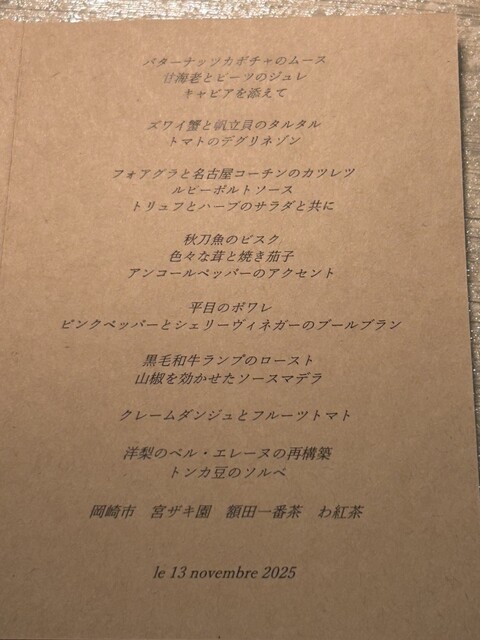 バターナッツカボチャのムース
甘海老とビーツのジュレ
キャビアを添えて
ズワイ蟹と帆立貝のタルタル
トマトのデグリネゾン
フォアグラと名古屋コーチンのカツレツ
ルビーポルトソース
トリュフとハーブのサラダと共に
秋刀魚のビスク
色々な茸と焼き茄子
アンコールペッパーのアクセント
平目のポワレ
ピンクペッパーとシェリーヴィネガーのブールブラン
黒毛和牛ランプのロースト
山椒を効かせたソースマデラ
クレームダンジュとフルーツトマト
洋梨のベル・エレーヌの再構築
トンカ豆のソルベ
岡崎市　宮ザキ園　額田一番茶　わ紅茶
le 13 novembre 2025